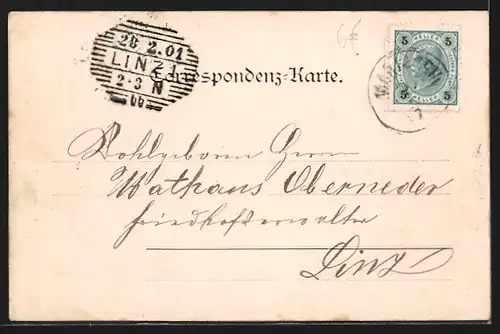 28 2.01
LINZ 1
2-3 N
Correspondenz-Karte.
5 5
HELLER
HELLER
5 5
Wohlgeboren Herrn
Mathäus Oberneder
Friedhofsverwalter
Linz